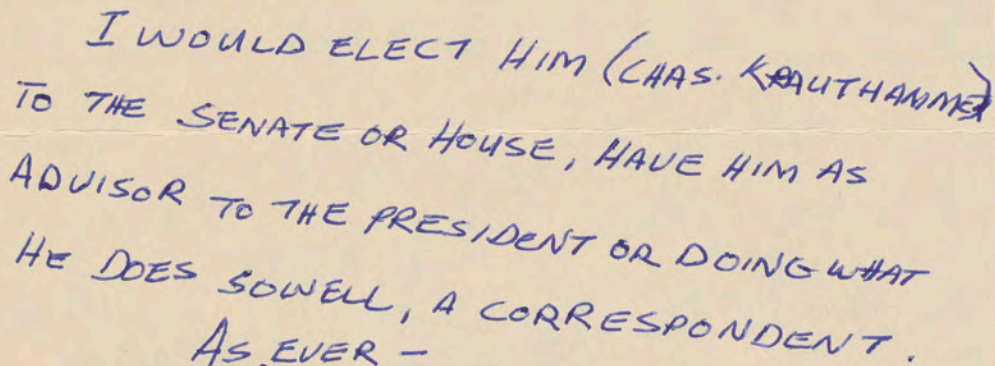 I WOULD ELECT HIM (CHAS. KRAUTHAMMER)
TO THE SENATE OR HOUSE, HAVE HIM AS
ADVISOR TO THE PRESIDENT OR DOING WHAT
HE DOES SOWELL, A CORRESPONDENT.
AS EVER -